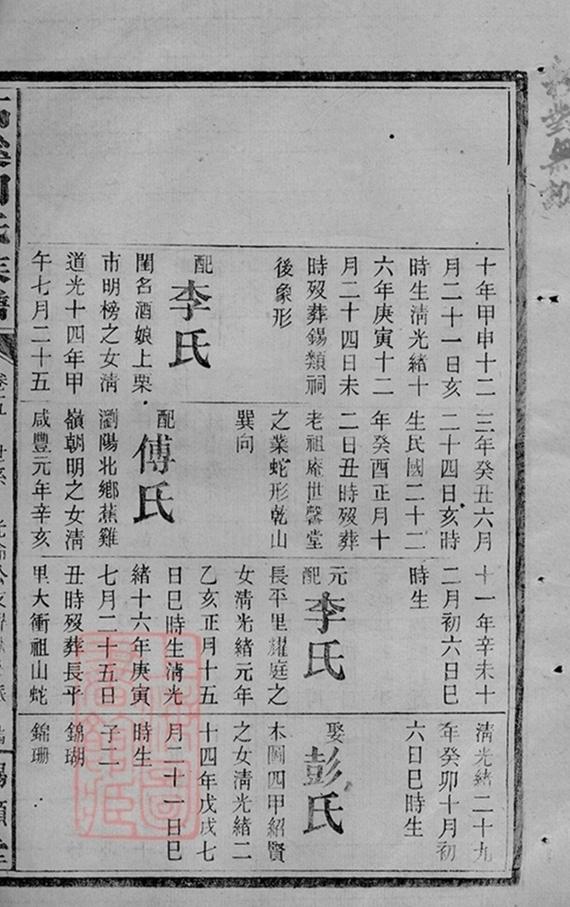 十年甲申十二
月二十一日亥
時生清光緒十
六年庚寅十二
月二十四日未
時歿葬錫類祠
後象形
配李氏
閨名酒娘上栗
市明榜之女清
道光十四年甲
午七月二十五
三年癸丑六月
二十四日亥時
生民國二十二
年癸酉正月十
二日丑時歿葬
老祖庵世馨堂
之業蛇形乾山
巽向
配傅氏
瀏陽北鄉蕉雞
嶺朝明之女清
咸豐元年辛亥
十一年辛未十
二月初六日巳
時生
元配李氏
長平里耀庭之
女清光緒元年
乙亥正月十五
日巳時生清光
緒十六年庚寅
七月二十五日
丑時歿葬長平
里大衝祖山蛇
清光緒二十九
年癸卯十月初
六日巳時生
娶彭氏
木圓四甲紹賢
之女清光緒二
十四年戊戌七
月二十一日巳
時生
子二
錦瑚
錦珊
氏族譜
卷十五
世系